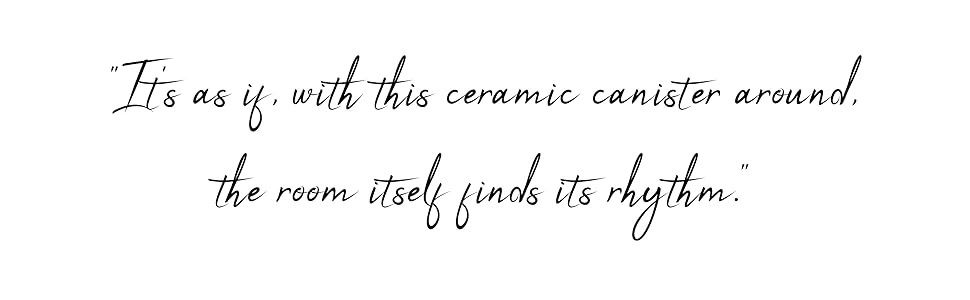 "It's as if, with this ceramic canister around,
the room itself finds its rhythm."